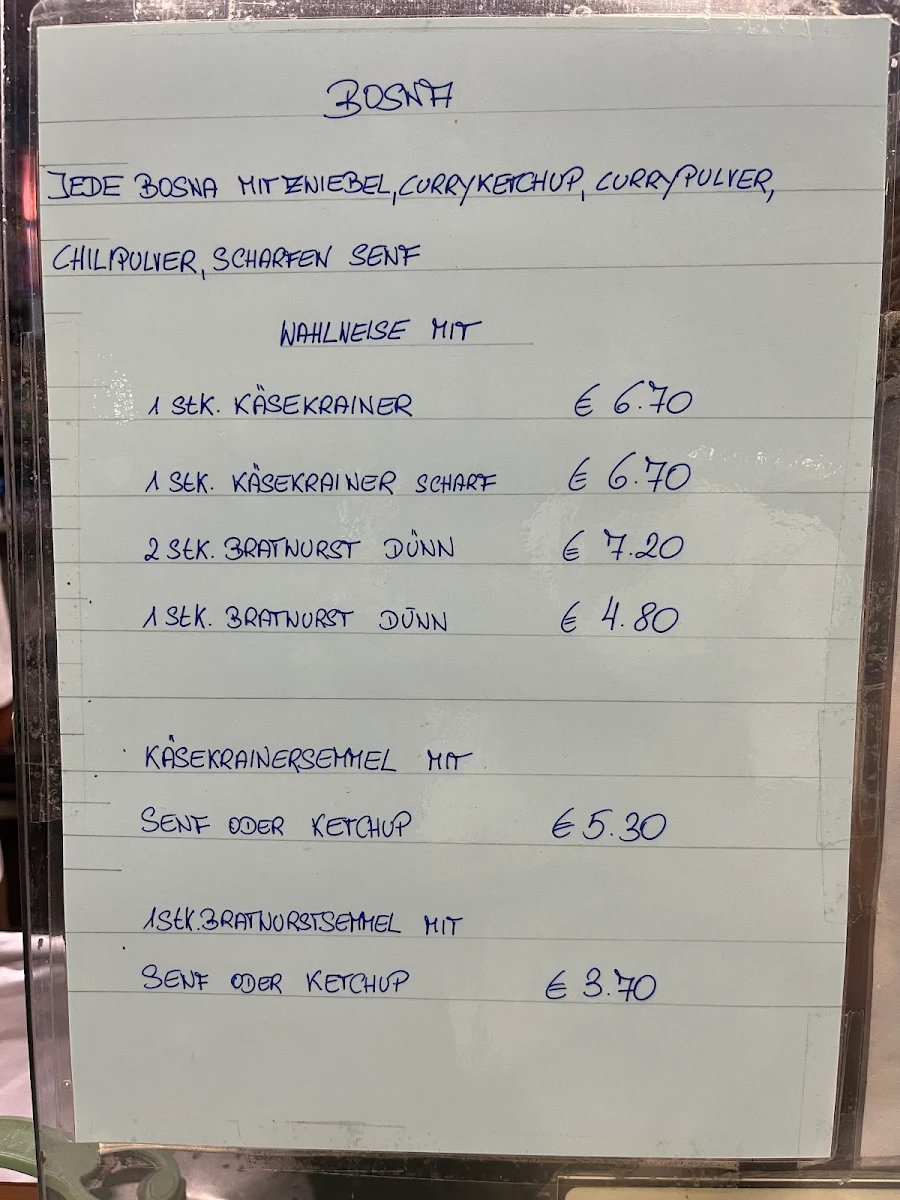 BOSNA
JEDE BOSNA MIT ZWIEBEL, CURRYKETCHUP, CURRYPULVER,
CHILIPULVER, SCHARFEN SENF
WAHLWEISE MIT
1 Stk. KÄSEKRAINER € 6.70
1 Stk. KÄSEKRAINER SCHARF € 6.70
2 Stk. BRATWURST DÜNN € 7.20
1 Stk. BRATWURST DÜNN € 4.80
KÄSEKRAINERSEMMEL MIT
SENF ODER KETCHUP € 5.30
1 Stk. BRATWURSTSEMMEL MIT
SENF ODER KETCHUP € 3.70